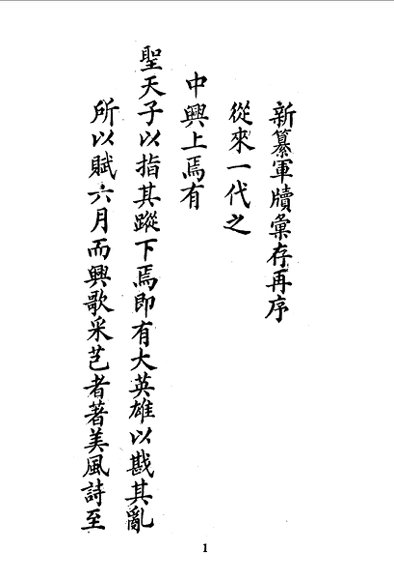 新纂軍牘彙存再序
從來一代之
中興上焉有
聖天子以指其蹤下焉即有大英雄以戡其亂
所以賦六月而興歌采芑者著美風詩至
1